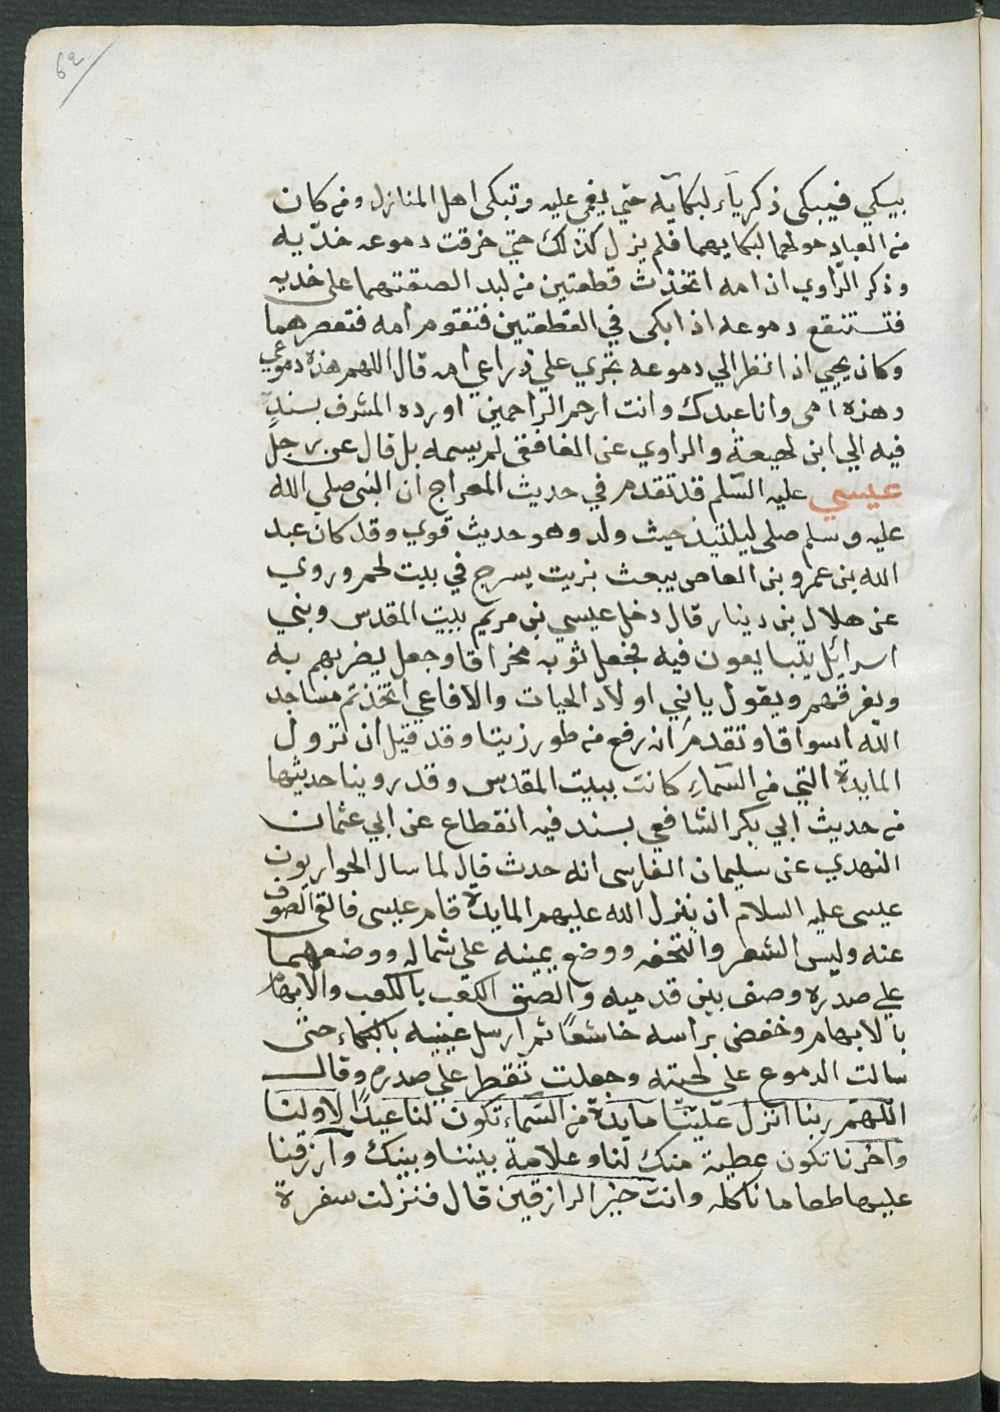 62
يبكي فيبكي زكرياء لبكايه حتي يغمي عليه وتبكي اهل المنازل ومن كان
من العباد حولهما لبكايهما فلم يزل كذلك حتي خرقت دموعه خدّيه
وذكر الرّاوي ان امه اتخذت قطعتين من لبد الصقتهما علي خديه
فتستنقع دموعه اذا بكي في القطعتين فتقوم امه فتعصرهما
وكان يحيي اذا نظر الي دموعه تجري علي ذراعي امه قال اللهم هذه دموعي
وهذه امي وانا عبدك وانت ارحم الراحمين اورده المشرف بسندٍ
فيه الي ابن لهيعة والراوي عن الغافقي لم يسمه بل قال عن رجل
عيسي عليه السّلم قد تقدم في حديث المعراج ان النبي صلي الله
عليه وسلم صلي ليلتيذ حيث ولد وهو حديث قوي وقد كان عبد
الله بن عمرو بن العاصي يبعث بزيت يسرج في بيت لحم وروي
عن هلال بن دينار قال دخل عيسي بن مريم ببيت المقدس وبني
اسرائل يتبايعون فيه فجعل ثوبه مخراقا وجعل يضربهم به
ويفرقهم ويقول يا بني اولاد الحيات والافاعي اتخذتم مساجد
الله اسواقا وتقدم انه رفع من طور زيتا وقد قيل ان نزول
المايدة التي من السّماءِ كانت ببيت المقدس وقد روينا حديثها
من حديث ابي بكر الشافعي بسند فيه انقطاع عن ابي عثمان
النهدي عن سليمان الفارسي انه حدث قال لما سال الحواريون
عيسي عليه السلام ان ينزل الله عليهم المايدة قام عيسي فالقي الصوف
عنه ولبس الشعر والتحف ووضع يمينه علي شماله ووضعهما
علي صدره وصف بين قدميه والصق الكعب بالكعب والابهام
بالابهام وخفض براسه خاشعًا ثم ارسل عينيه بالبكاء حتي
سالت الدموع علي لحيته وجعلت تقطر علي صدره وقال
اللهمّ ربنا انزل علينا مايدة من السّماء تكون لنا عيدًا لاولنا
واخرنا تكون عطية منك لنا وعلامة بيننا وبينك وارزقنا
عليها طعاما ناكله وانت خير الرازقين قال فنزلت سفرة